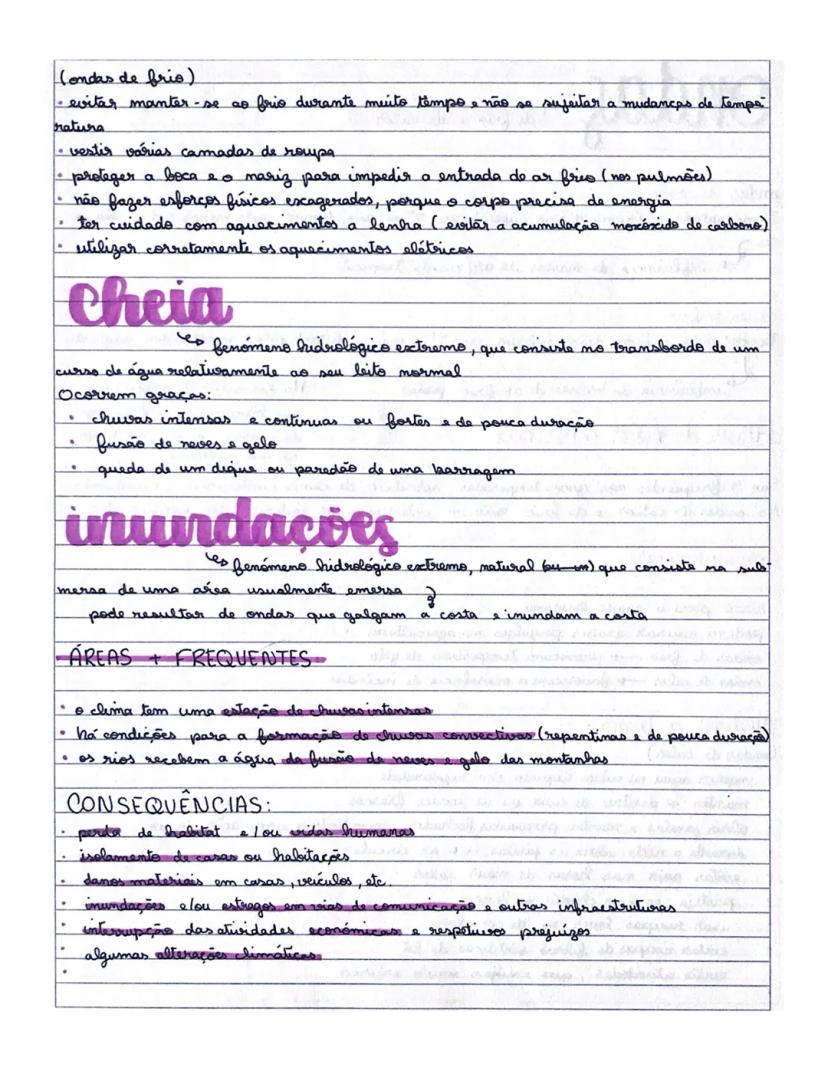 (ondas de frio)
• evitar manter-se ao frio durante muito tempo e não se sujeitar a mudanças de tempe
ratura
• vestir várias camadas de roupa
• proteger a boca e o nariz para impedir a entrada de ar frio (nos pulmões)
• não fazer esforços físicos exagerados, porque o corpo precisa de energia
• ter cuidado com aquecimentos a lenha (evitar a acumulação monóxido de carbono)
• utilizar corretamente os aquecimentos elétricos
cheia
↳ fenómeno hidrológico extremo, que consiste no transbordo de um
curso de água relativamente ao seu leito normal
Ocorrem graças:
• chuvas intensas e contínuas ou fortes e de pouca duração
• fusão de neves e gelo
• queda de um dique ou paredão de uma barragem
inundações
↳ fenómeno hidrológico extremo, natural (ou um) que consiste na sub-
mersa de uma área usualmente emersa
pode resultar de ondas que galgam a costa e inundam a costa
ÁREAS + FREQUENTES
• o clima tem uma estação de chuvas intensas
• há condições para a formação de chuvas convectivas (repentinas e de pouca duração)
• os rios recebem a água da fusão de neves e gelo das montanhas
CONSEQUÊNCIAS:
• perda de habitat e/ou vidas humanas
• isolamento de casas ou habitações
• danos materiais em casas, veículos, etc.
• inundações e/ou estragos em vias de comunicação e outras infraestruturas
• interrupção das atividades económicas e respetivos prejuízos
• algumas alterações climáticas
•